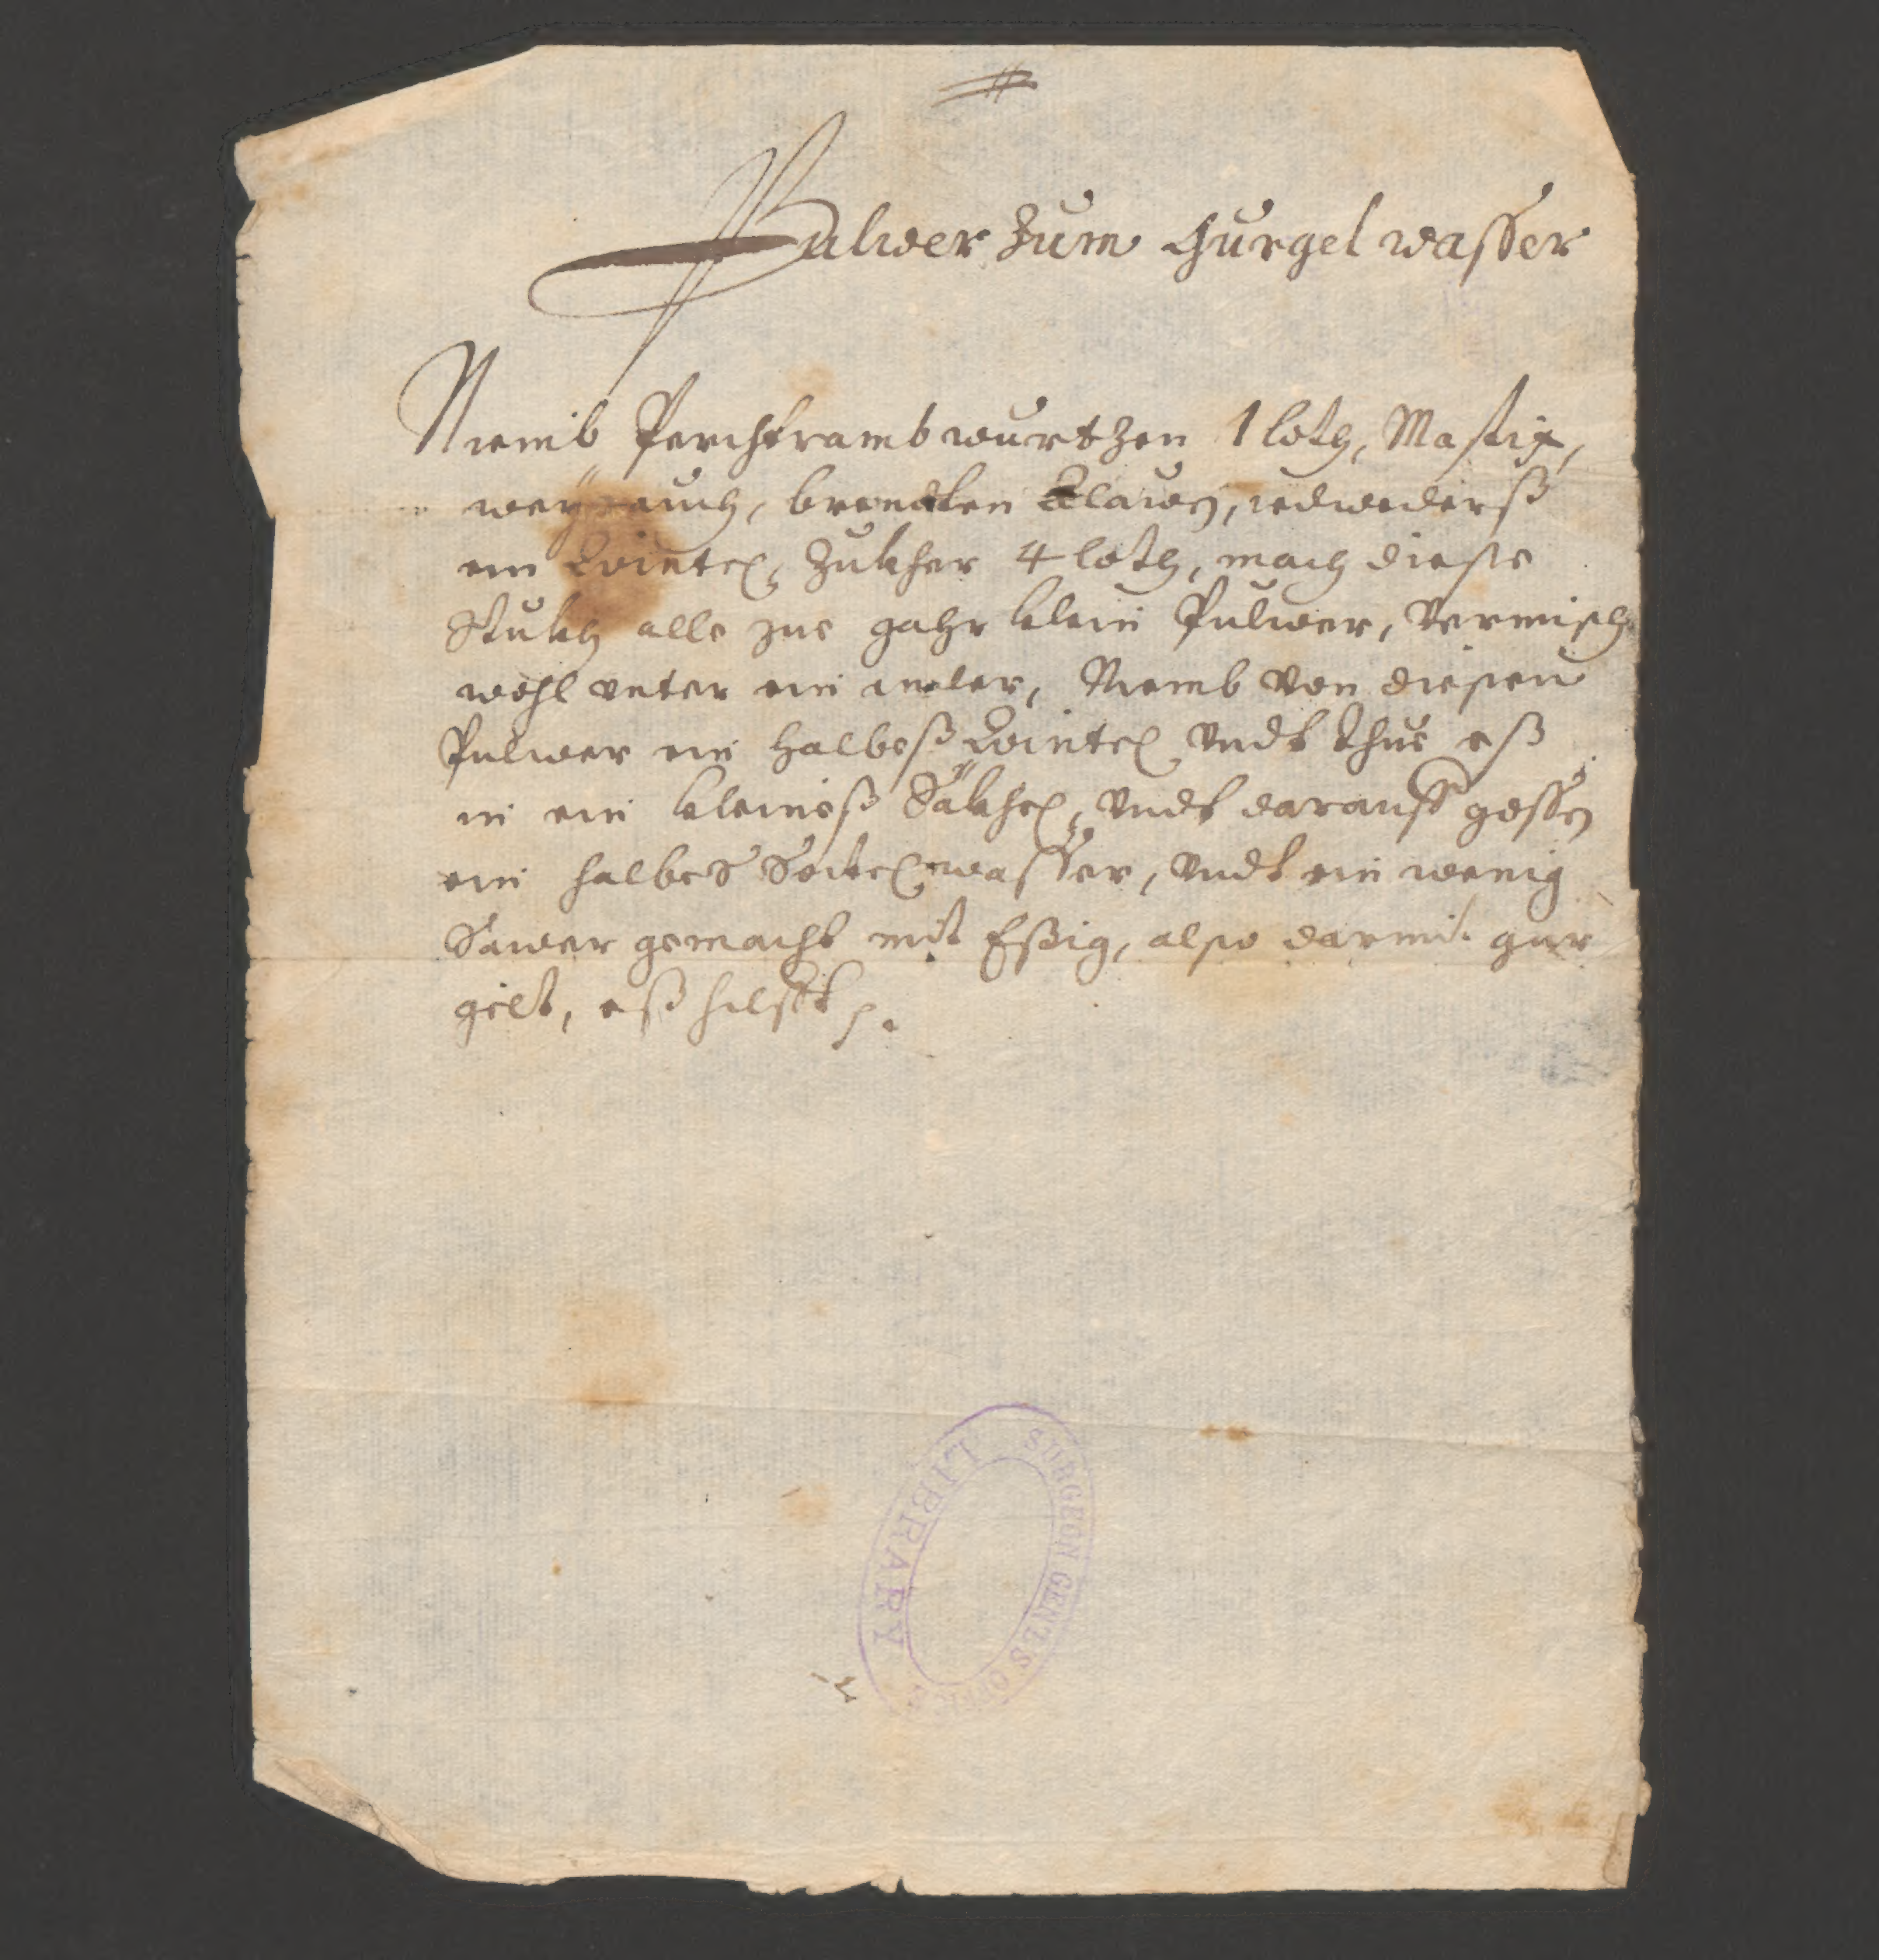 Pulver Zum Gurgel wasser
Niemb Perchtramb wurtzen 1 loth, Mastix,
weyrauch, brendten Alaun, iedwederß
ein Quintel, Zukher 4 loth, mach diese
Stukh alle zue gahr klein Pulver, Vermisch
wohl unter ein ander, Niemb von diesen
Pulver ein halbeß Quintel Undt thue eß
in ein kleineß Säkhel, Undt darauff gossen
ein halbes Seitel wasser, Undt ein wenig
Sawer gemacht mit Eßig, also darmit gur
gelt, eß hilfft
SURGEON GEN'LS OFFICE
LIBRARY